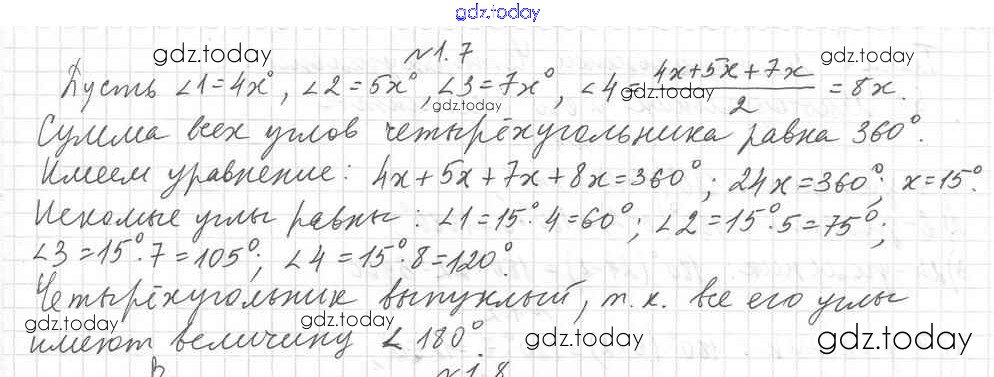 gdz.today
gdz.today №1.7 gdz.today
Пусть ∠1=4x°, ∠2=5x°, ∠3=7x°, ∠4=(4x+5x+7x)/2=8x.
gdz.today gdz.today
Сумма всех углов четырёхугольника равна 360°.
Имеем уравнение: 4x+5x+7x+8x=360°; 24x=360°; x=15°.
Искомые углы равны: ∠1=15°·4=60°; ∠2=15°·5=75°;
∠3=15°·7=105°; ∠4=15°·8=120°.
Четырёхугольник выпуклый, т.к. все его углы
gdz.today gdz.today
имеют величину < 180°.
gdz.today gdz.today
№1.8